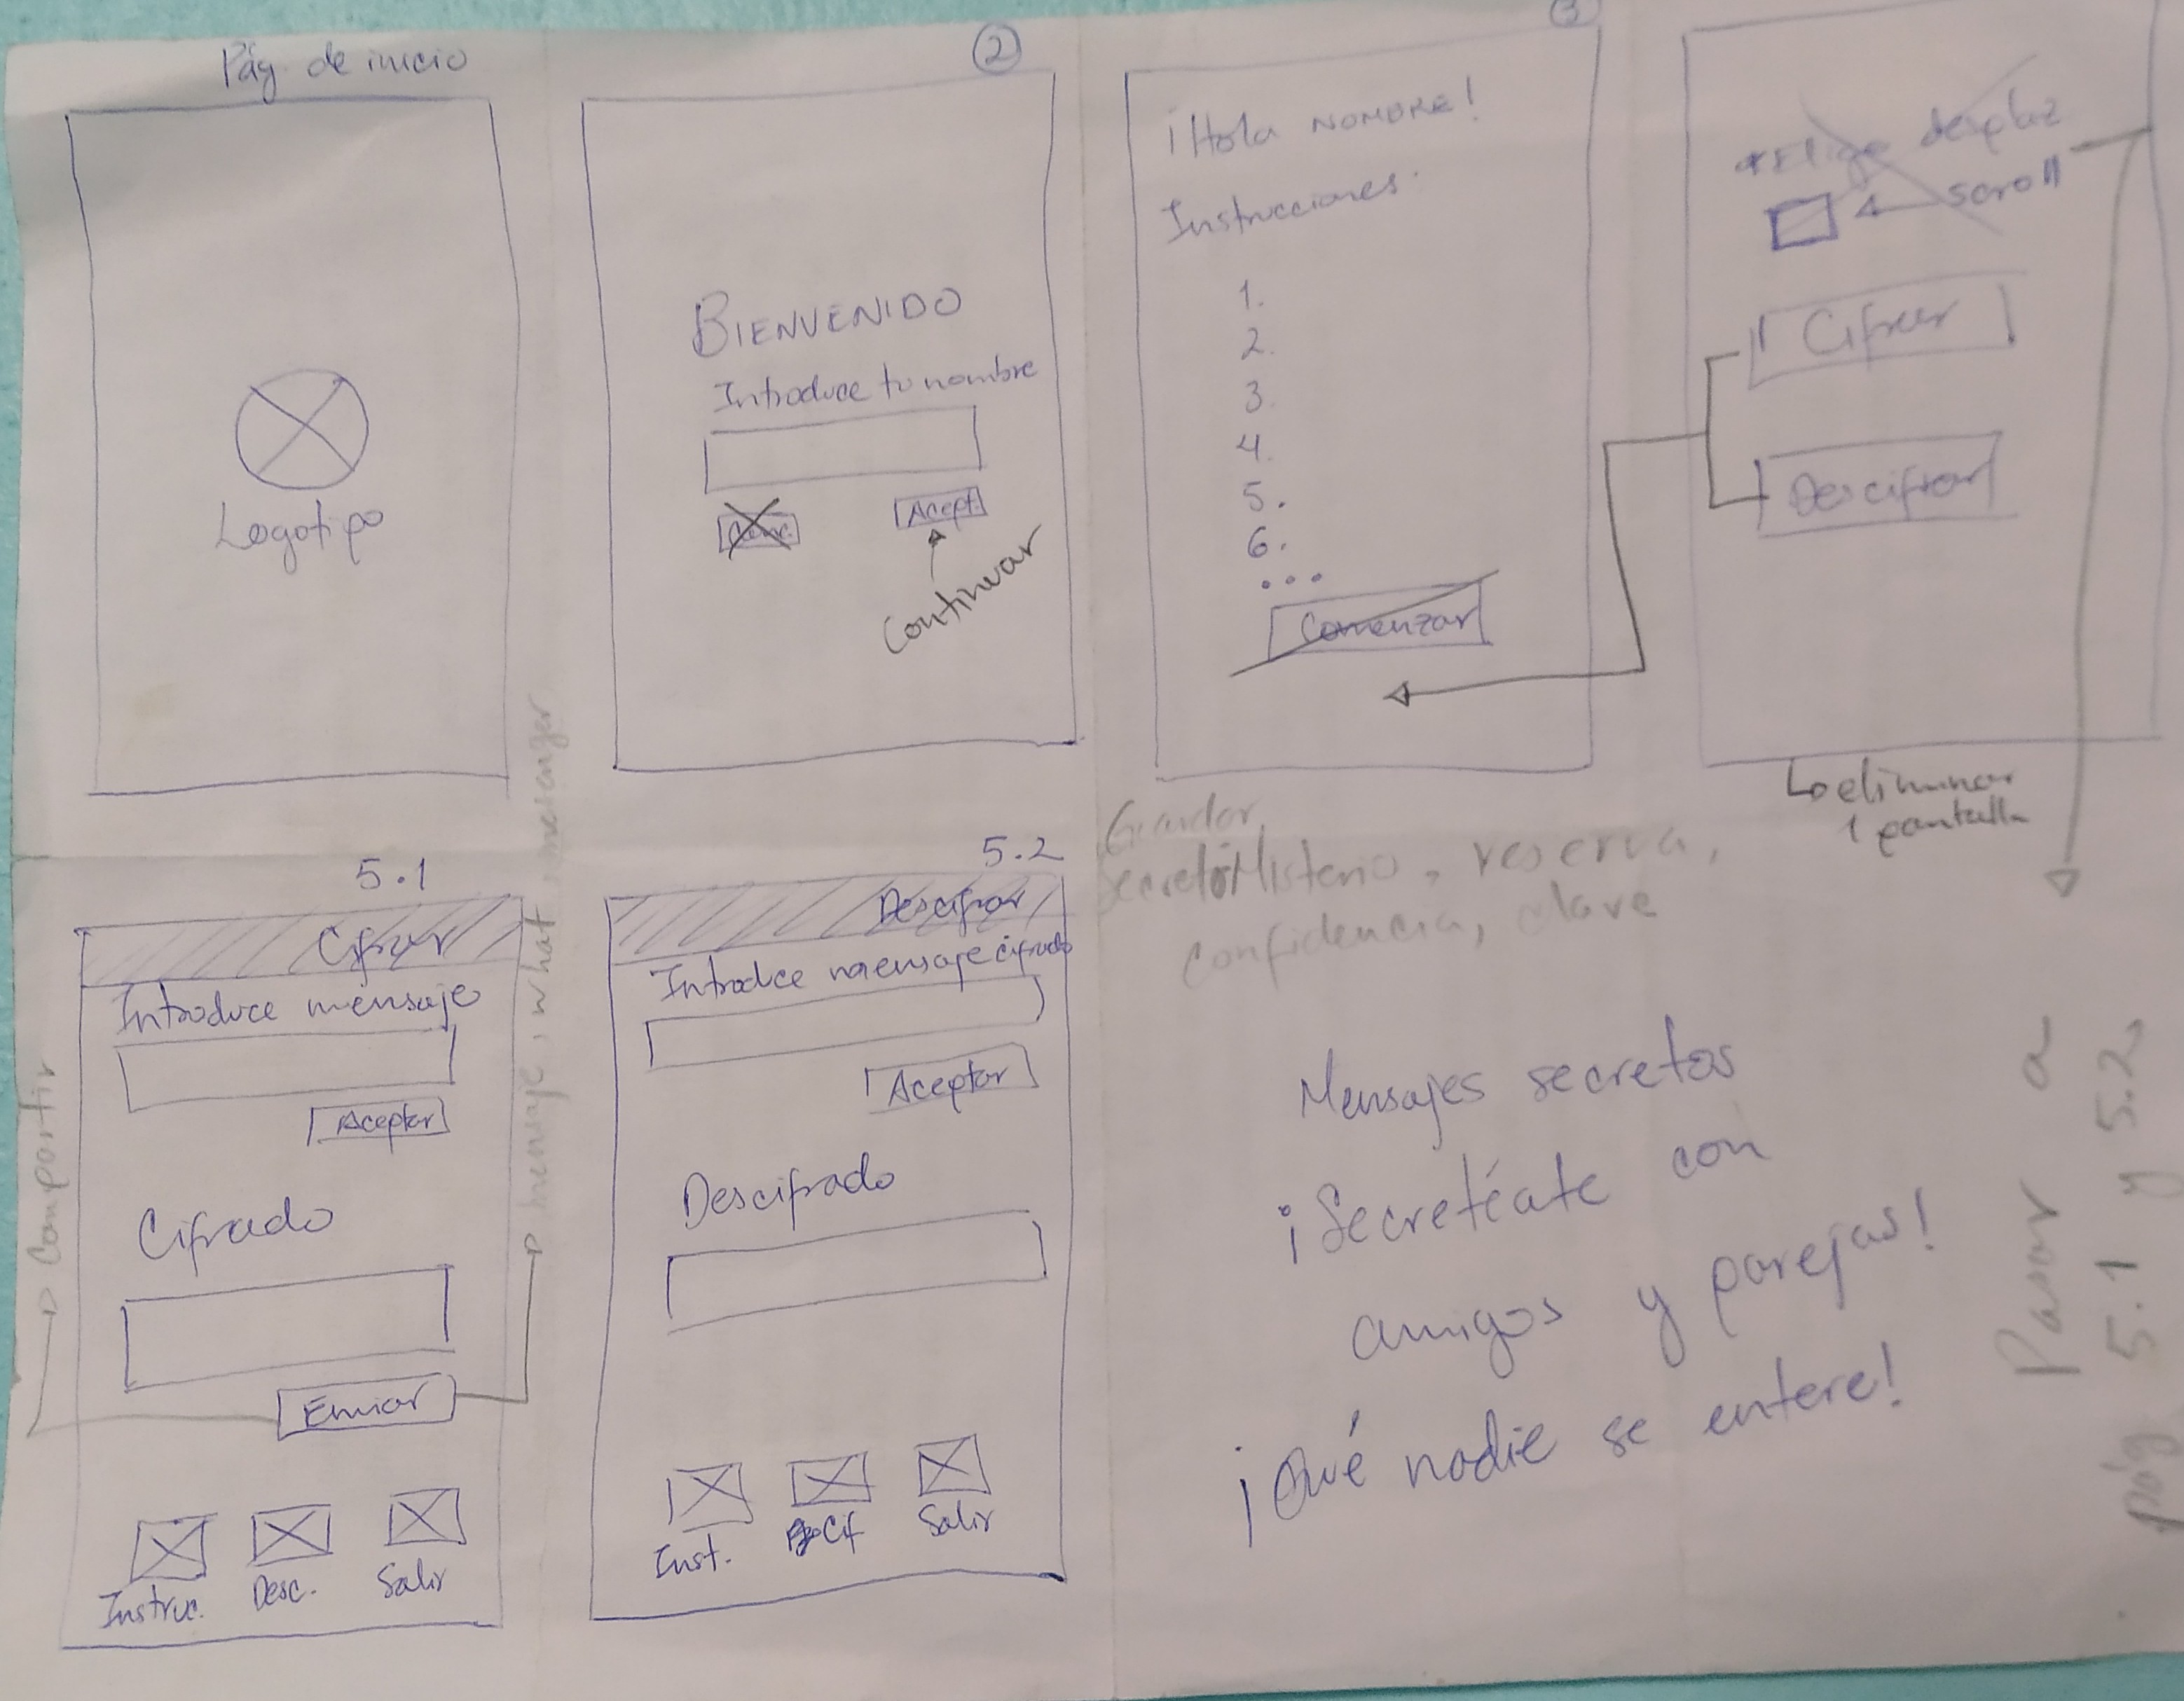 Pág. de inicio
Logotipo
2
BIENVENIDO
Introduce tu nombre
Canc.
Acept.
Continuar
3
¡Hola NOMBRE!
Instrucciones.
1.
2.
3.
4.
5.
6.
...
Comenzar
*Elige desplaz
scroll
Cifrar
Descifrar
eliminar
1 pantalla
Pasar a
pág 5.1 y 5.2
5.1
Cifrar
Introduce mensaje
Aceptar
Cifrado
Enviar
Compartir
mensaje, what, mesenger
Instruc.
Desc.
Salir
5.2
Descifrar
Introduce mensaje cifrado
Aceptar
Descifrado
Inst.
Cif
Salir
Misterio, reserva,
confidencia, clave
Mensajes secretos
¡Secretéate con
amigos y parejas!
¡Qué nadie se entere!